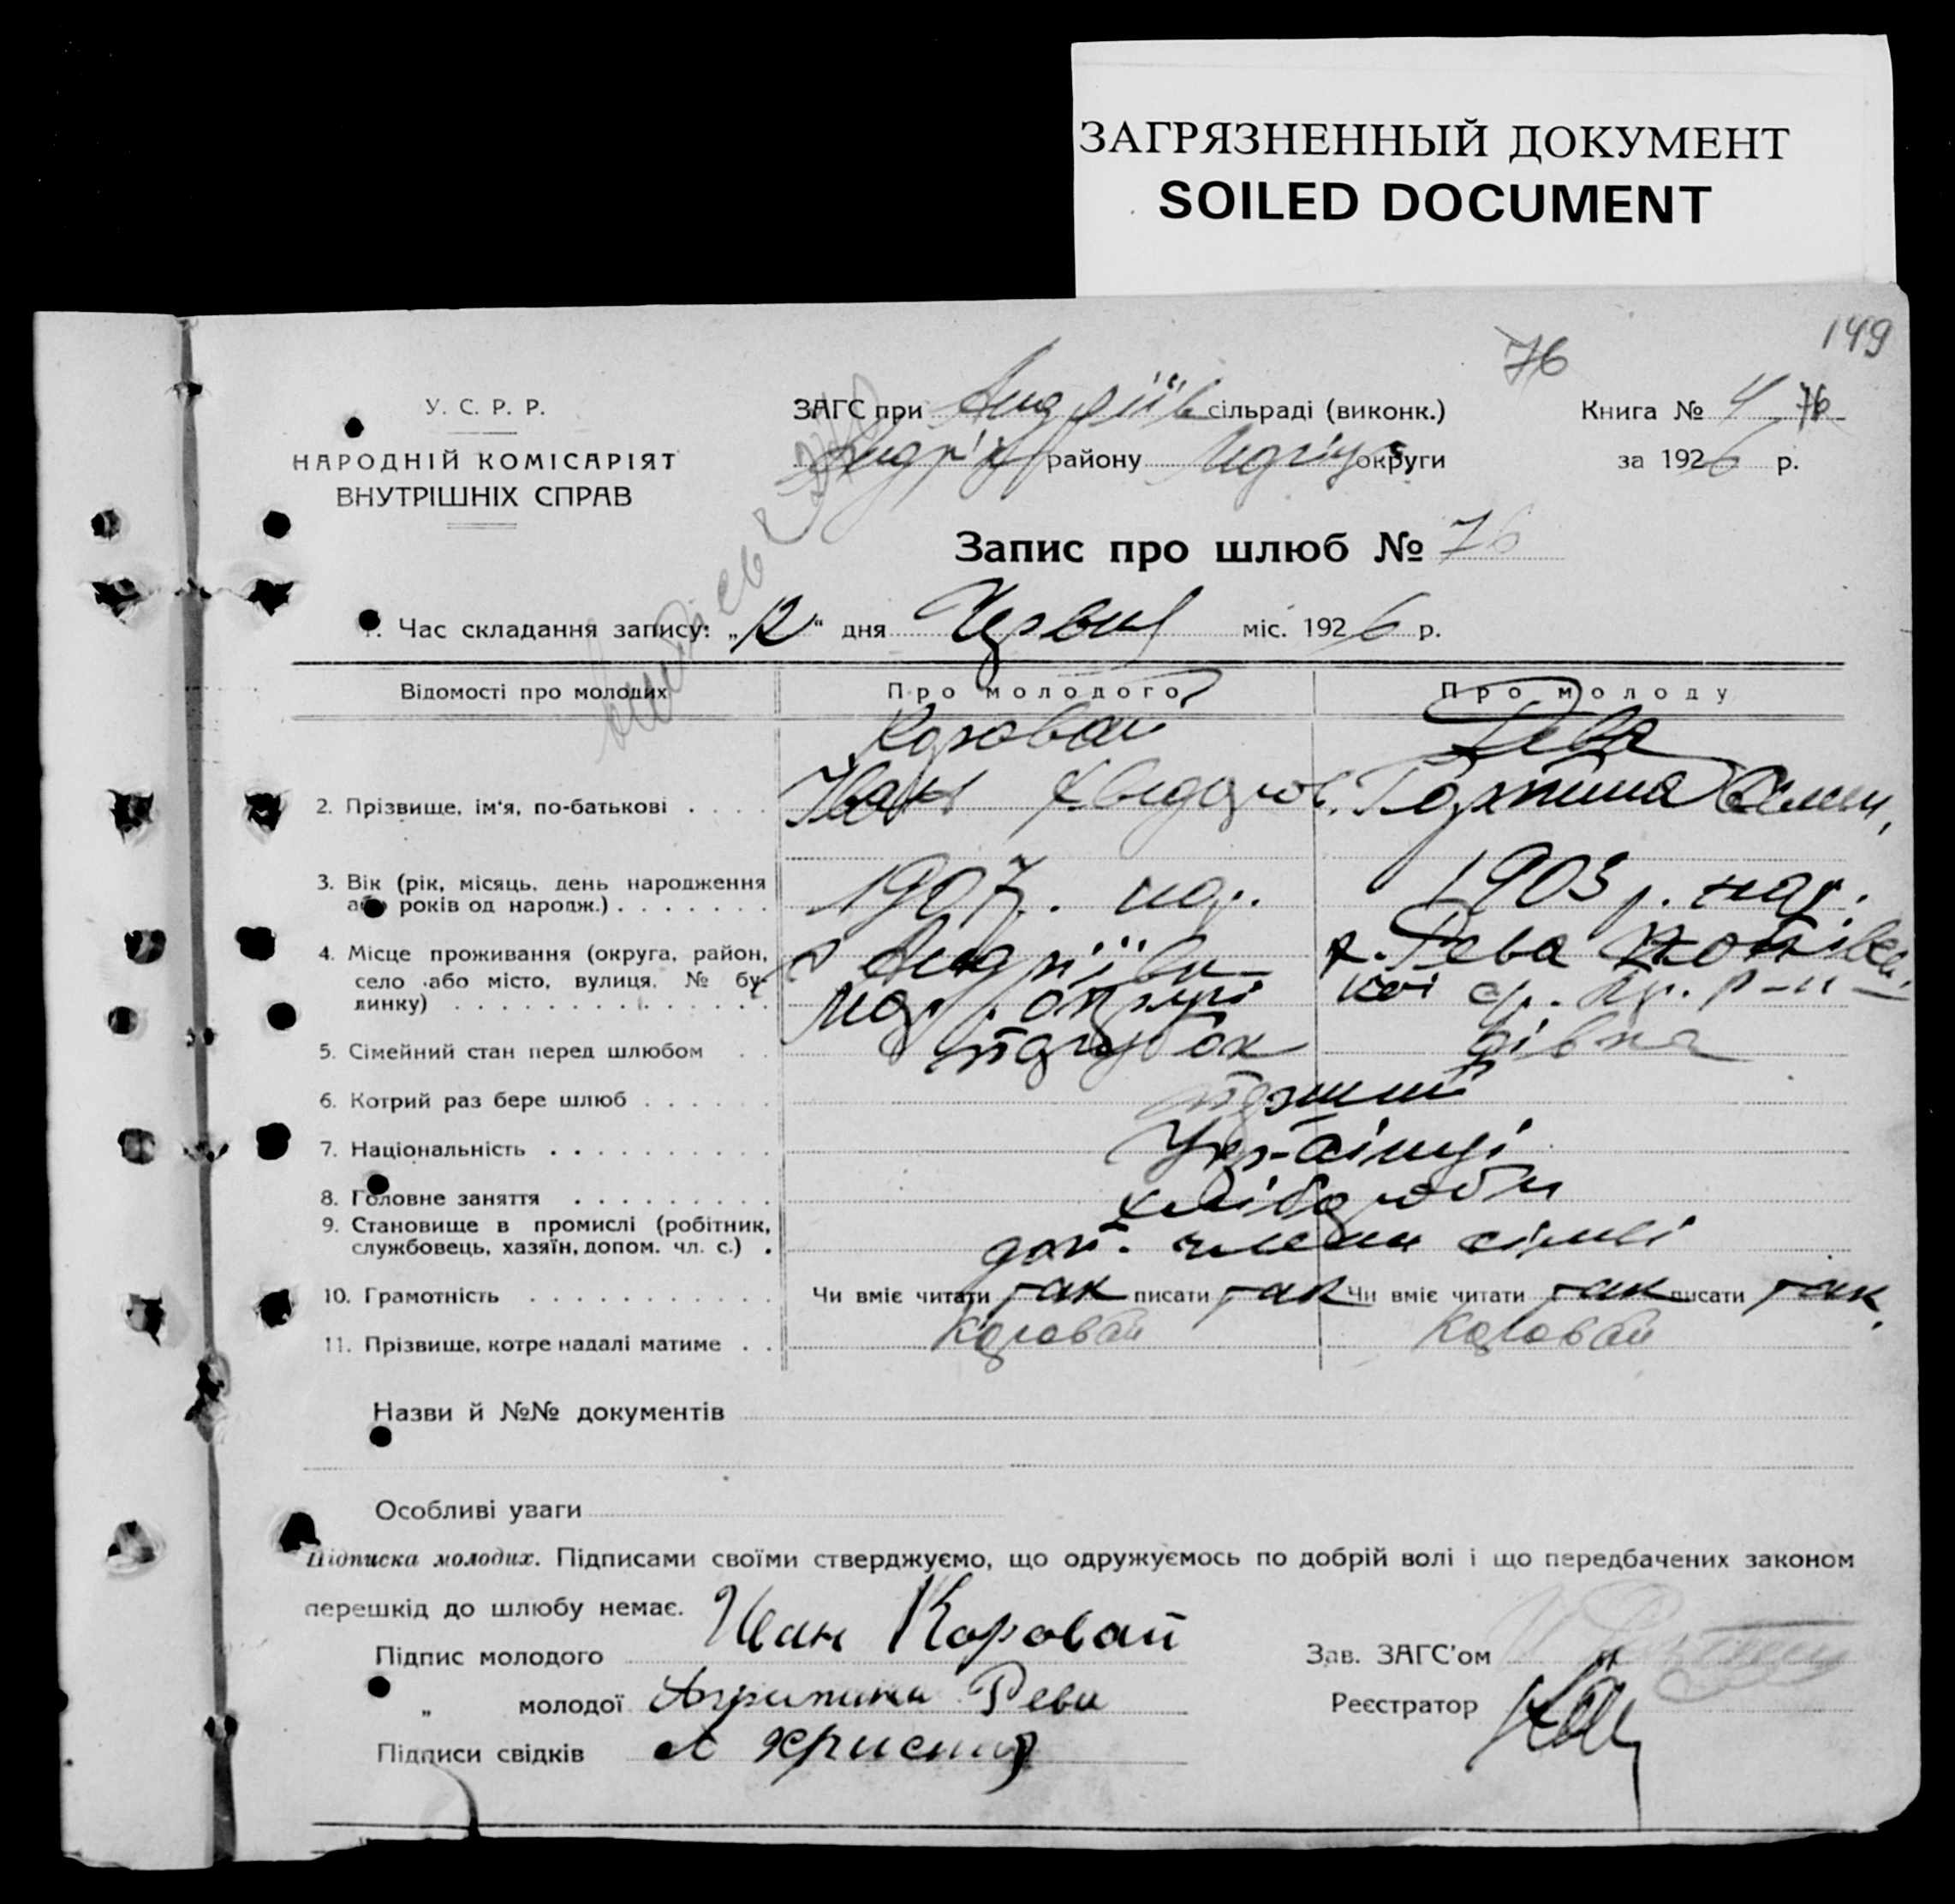 ЗАГРЯЗНЕННЫЙ ДОКУМЕНТ
SOILED DOCUMENT
149
76
У. С. Р. Р.
НАРОДНІЙ КОМІСАРІЯТ
ВНУТРІШНІХ СПРАВ
ЗАГС при Андріїв сільраді (виконк.)
району округи
Книга № 4 76
за 1926 р.
Запис про шлюб № 76
1. Час складання запису: „12“ дня Червця міс. 1926 р.
Відомості про молодих
Про молодого
Про молоду
Коровай
Рева
2. Прізвище, ім'я, по-батькові . . . .
Іван
3. Вік (рік, місяць, день народження
або років од народж.) . . . . . . .
1907. нар.
1903 р. нар.
4. Місце проживання (округа, район,
село або місто, вулиця, № бу-
динку) . . . . . . . . . . . . . .
х. Рева
5. Сімейний стан перед шлюбом . .
парубок
дівка
6. Котрий раз бере шлюб . . . . . .
перший
7. Національність . . . . . . . . . .
Українці
8. Головне заняття . . . . . . . . .
хлібороби
9. Становище в промислі (робітник,
службовець, хазяїн, допом. чл. с.) .
доп. члени сімьі
10. Грамотність . . . . . . . . . . .
Чи вміє читати так писати так
Чи вміє читати так писати так.
11. Прізвище, котре надалі матиме . .
Коровай
Коровай
Назви й №№ документів
Особливі уваги
Підписка молодих. Підписами своїми стверджуємо, що одружуємось по добрій волі і що передбачених законом
перешкід до шлюбу немає.
Підпис молодого Иван Коровай
„ молодої Агрипина Рева
Підписи свідків
Зав. ЗАГС'ом
Реєстратор